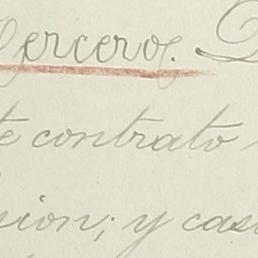 Terceros.
te contrato
sion; y cas